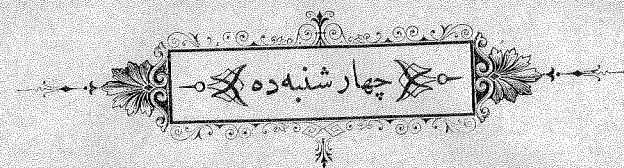 چهار شنبه ده